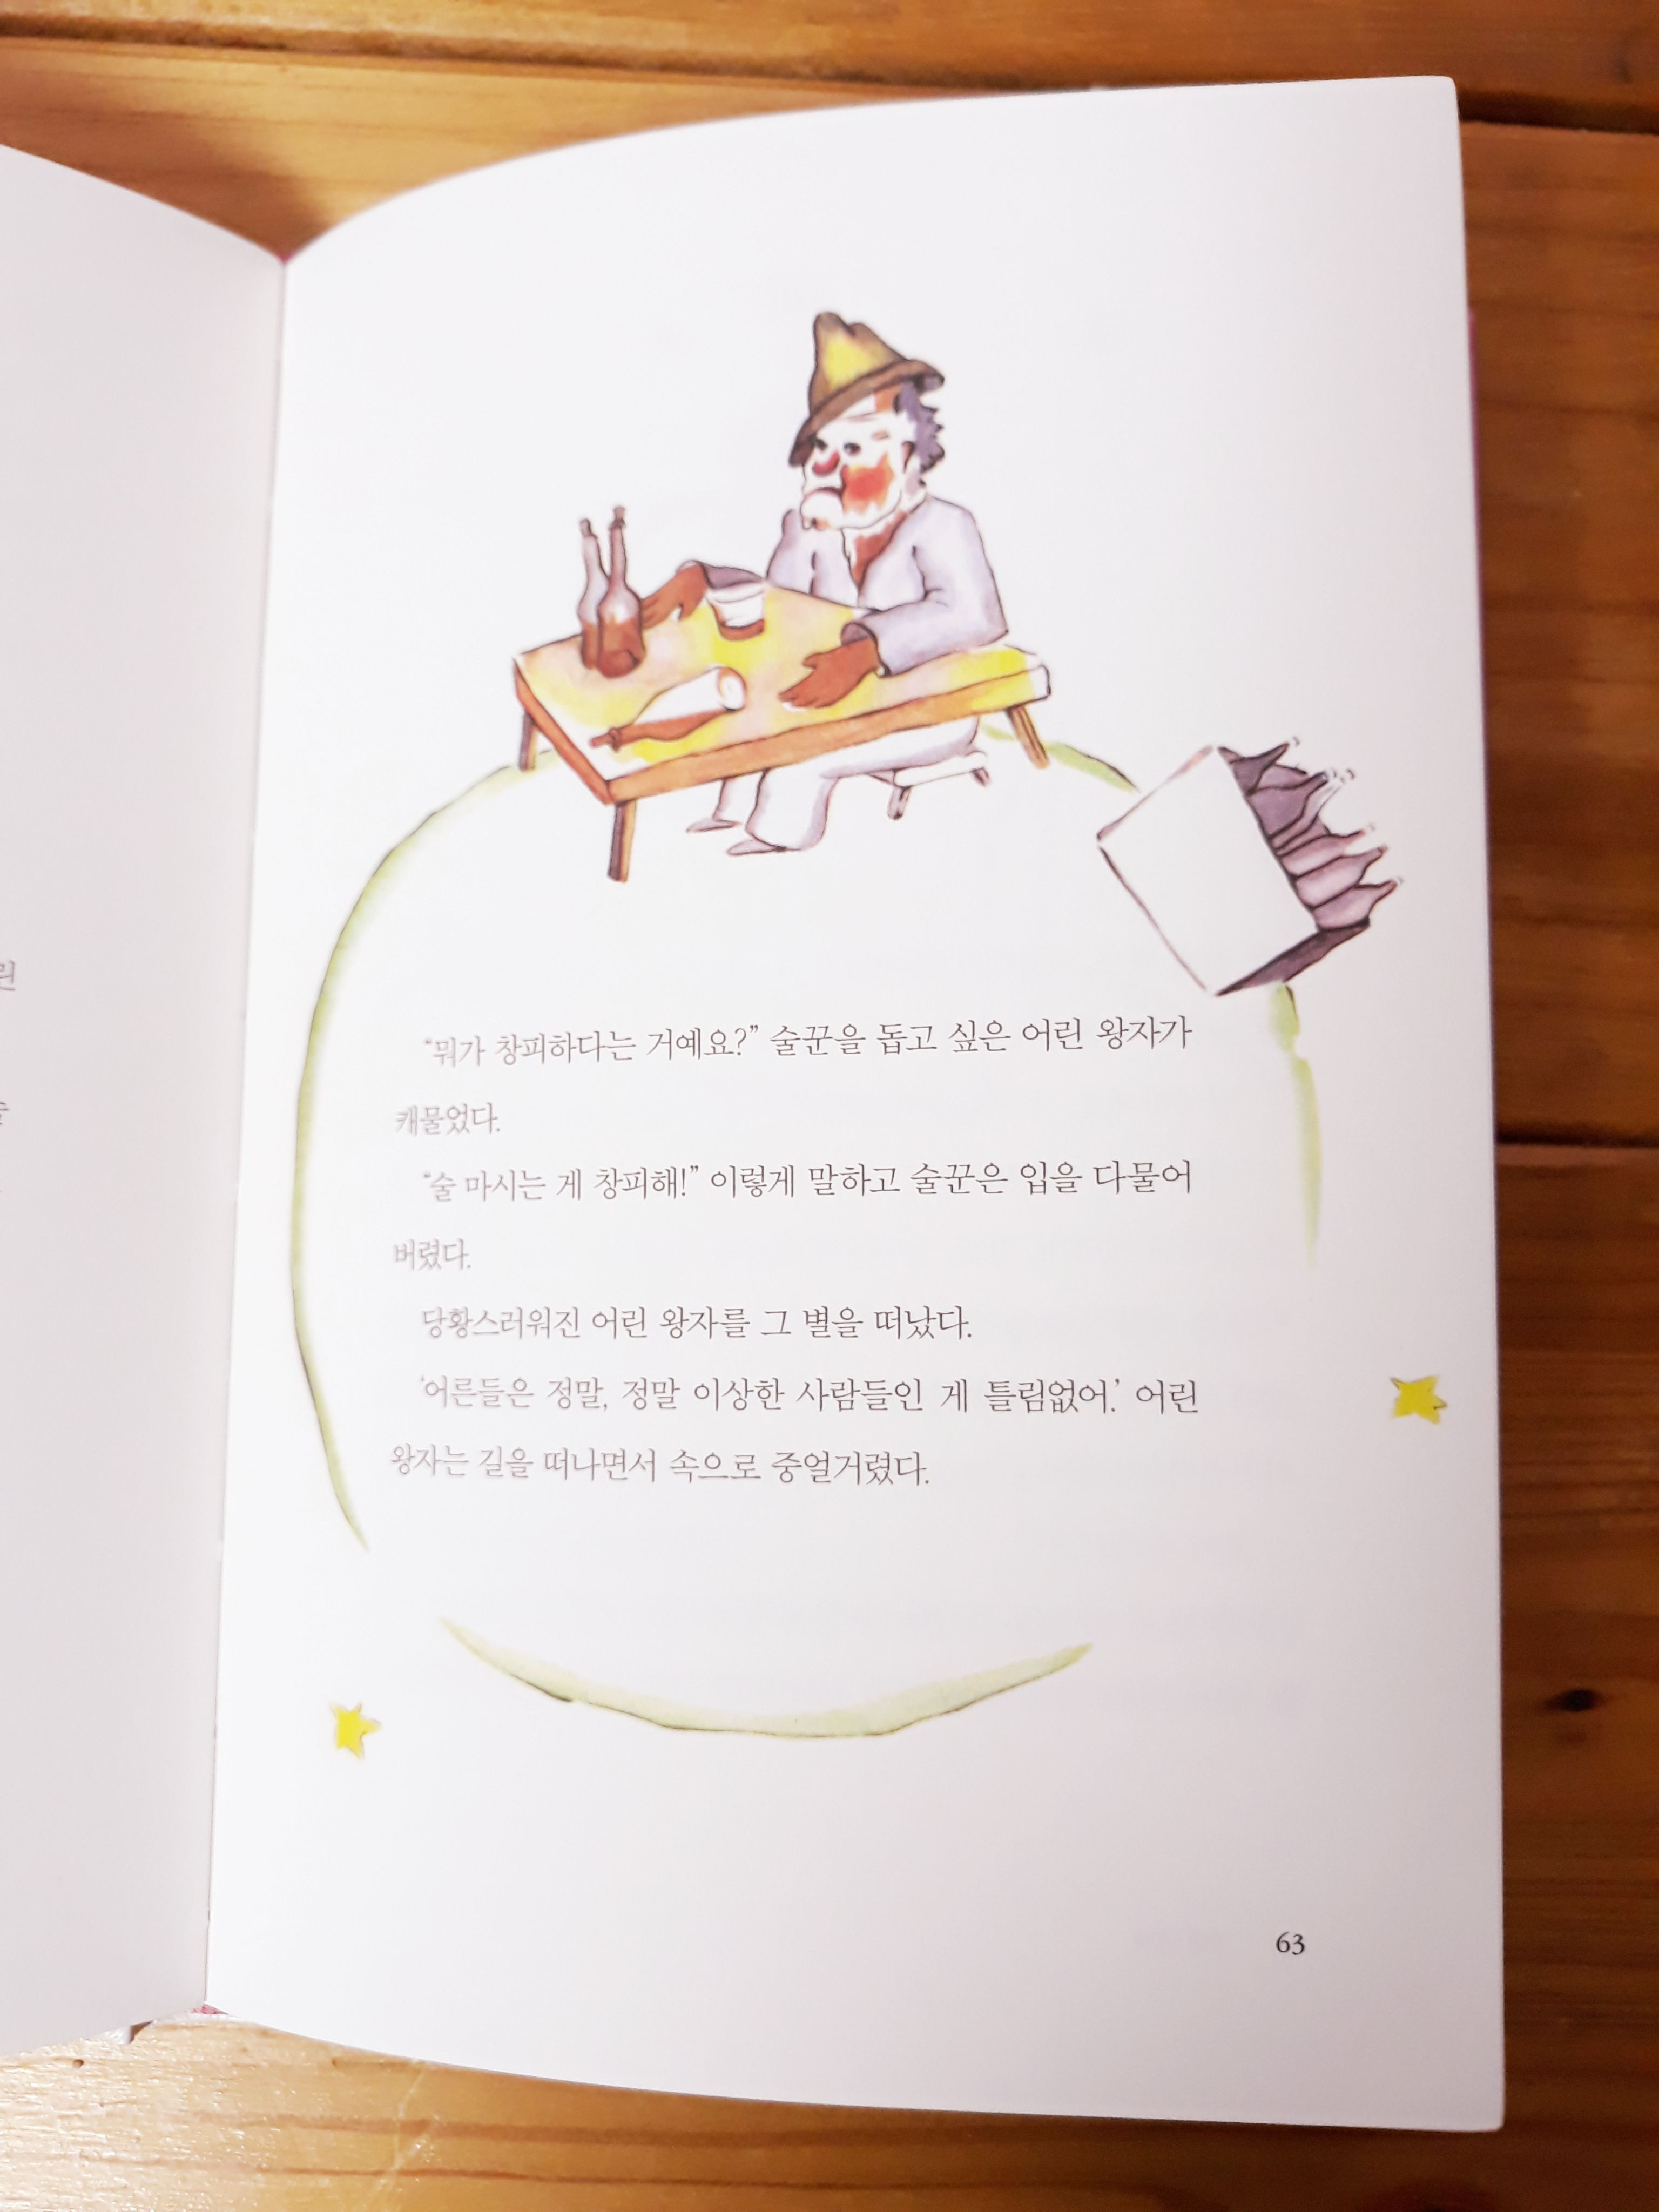 린
"뭐가 창피하다는 거예요?" 술꾼을 돕고 싶은 어린 왕자가
캐물었다.
"술 마시는 게 창피해!" 이렇게 말하고 술꾼은 입을 다물어
버렸다.
당황스러워진 어린 왕자를 그 별을 떠났다.
'어른들은 정말, 정말 이상한 사람들인 게 틀림없어.' 어린
왕자는 길을 떠나면서 속으로 중얼거렸다.
63